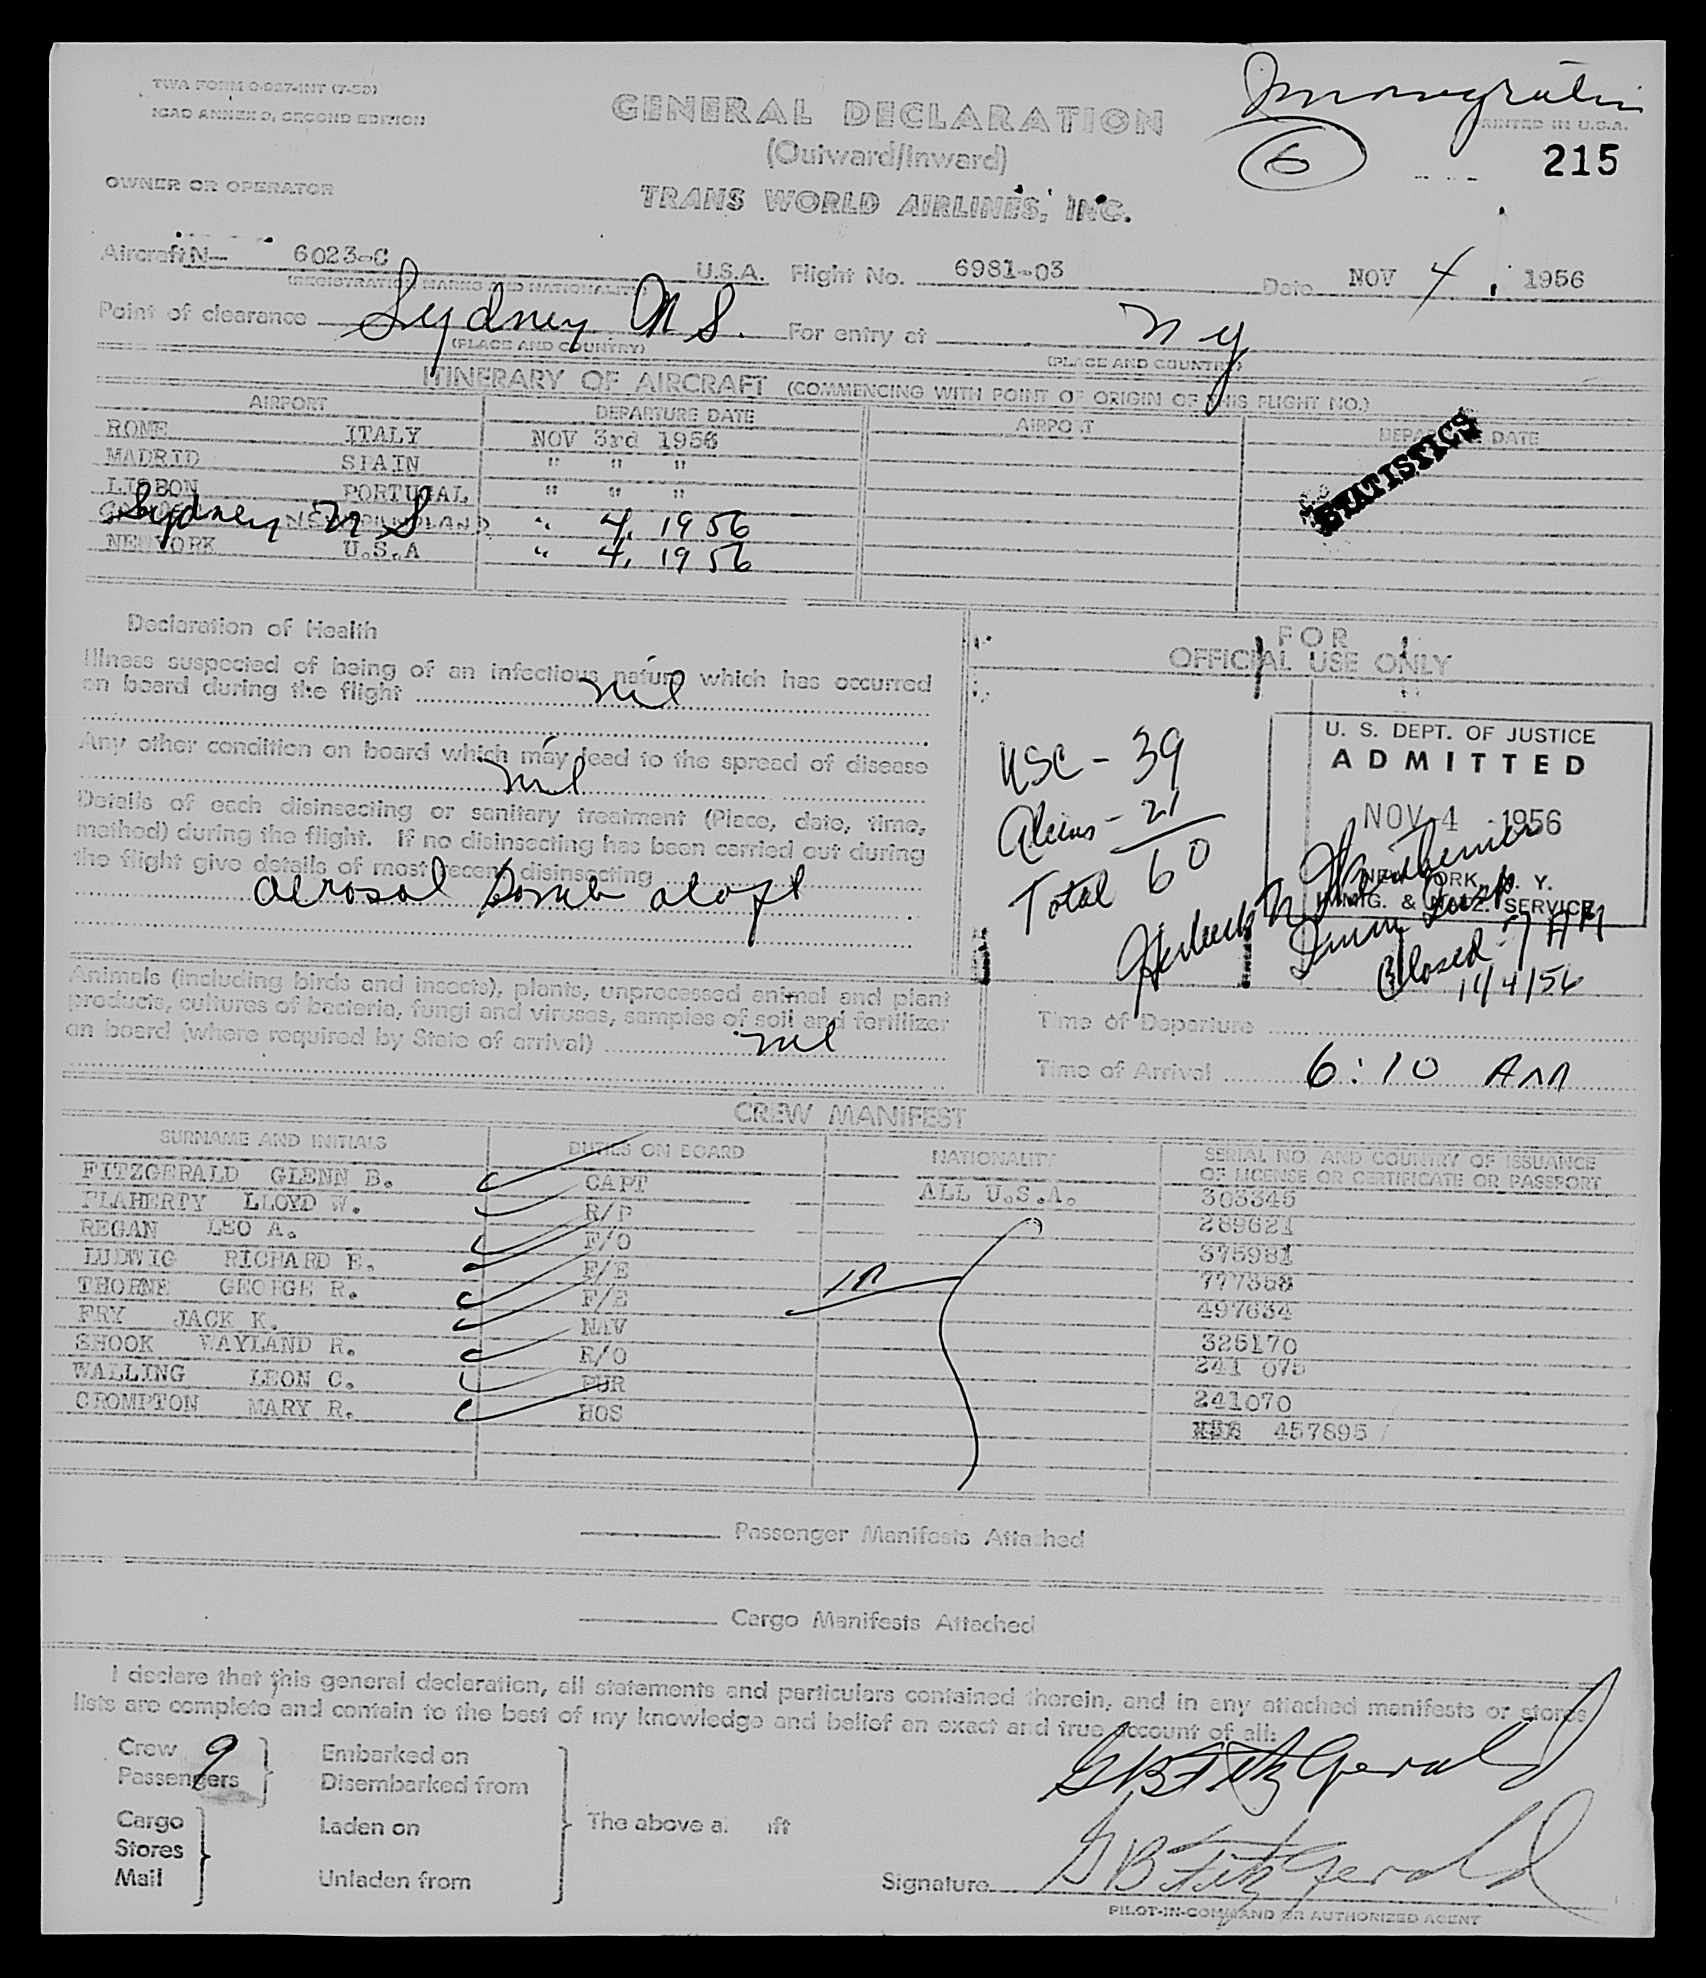 TWA FORM O-027-INT (7-52)
ICAO ANNEX 9, SECOND EDITION
Immigration
GENERAL DECLARATION
PRINTED IN U.S.A.
(Outward/Inward)
6
215
OWNER OR OPERATOR
TRANS WORLD AIRLINES, INC.
Aircraft N- 6023-C U.S.A. Flight No. 6981-03 Date NOV 4, 1956
(REGISTRATION MARKS AND NATIONALITY)
Point of clearance Sydney N S. For entry at N Y
(PLACE AND COUNTRY) (PLACE AND COUNTRY)
ITINERARY OF AIRCRAFT (COMMENCING WITH POINT OF ORIGIN OF THIS FLIGHT NO.)
AIRPORT DEPARTURE DATE AIRPORT DEPARTURE DATE
STATISTICS
ROME ITALY NOV 3rd 1956
MADRID SPAIN " " "
LISBON PORTUGAL " " "
Sydney N S " 4, 1956
NEW YORK U.S.A " 4, 1956
Declaration of Health
FOR
OFFICIAL USE ONLY
Illness suspected of being of an infectious nature which has occurred
on board during the flight nil
Any other condition on board which may lead to the spread of disease
nil
Details of each disinsecting or sanitary treatment (Place, date, time,
method) during the flight. If no disinsecting has been carried out during
the flight give details of most recent disinsecting
aerosol bomb aloft
USC - 39
Aliens - 21
Total 60
U. S. DEPT. OF JUSTICE
ADMITTED
NOV 4 1956
NEW YORK, N. Y.
IMMIG. & NATZ. SERVICE
Herbert
Closed - 7 AM
11/4/56
Animals (including birds and insects), plants, unprocessed animal and plant
products, cultures of bacteria, fungi and viruses, samples of soil and fertilizer
on board (where required by State of arrival) nil
Time of Departure
Time of Arrival 6:10 AM
CREW MANIFEST
SURNAME AND INITIALS DUTIES ON BOARD NATIONALITY SERIAL NO. AND COUNTRY OF ISSUANCE
OF LICENSE OR CERTIFICATE OR PASSPORT
FITZGERALD GLENN B. CAPT ALL U.S.A. 303345
FLAHERTY LLOYD W. R/P 289621
REGAN LEO A. F/O 375981
LUDWIG RICHARD E. F/E 777358
THORNE GEORGE R. F/E 497634
FRY JACK K. NAV 325170
SHOOK WAYLAND R. R/O 241 075
WALLING LEON C. PUR 241070
CROMPTON MARY R. HOS 457895
Passenger Manifests Attached
Cargo Manifests Attached
I declare that this general declaration, all statements and particulars contained therein, and in any attached manifests or stores
lists are complete and contain to the best of my knowledge and belief an exact and true account of all:
Crew 9 Embarked on
Passengers Disembarked from
G B FitzGerald
Cargo Laden on The above aircraft
Stores
Mail Unladen from
Signature G B FitzGerald
PILOT-IN-COMMAND OR AUTHORIZED AGENT